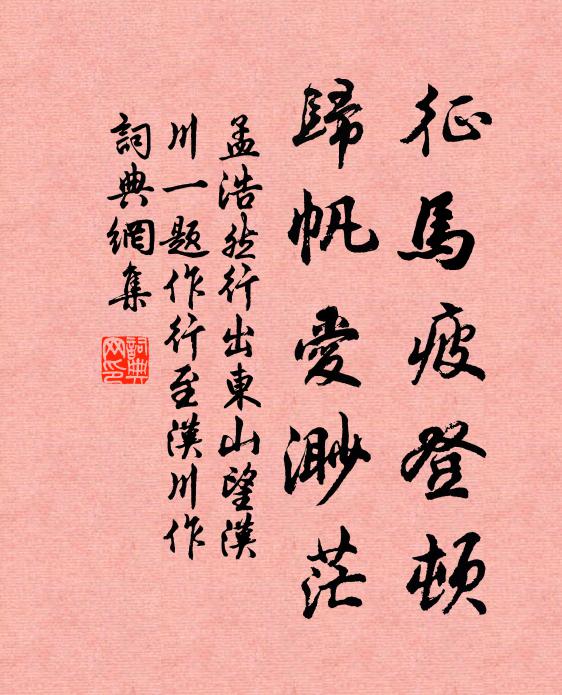 征馬疲登頓
歸帆愛渺茫
孟浩然行出東山望漢
川一題作行至漢川作
詞典網集
詞典網印